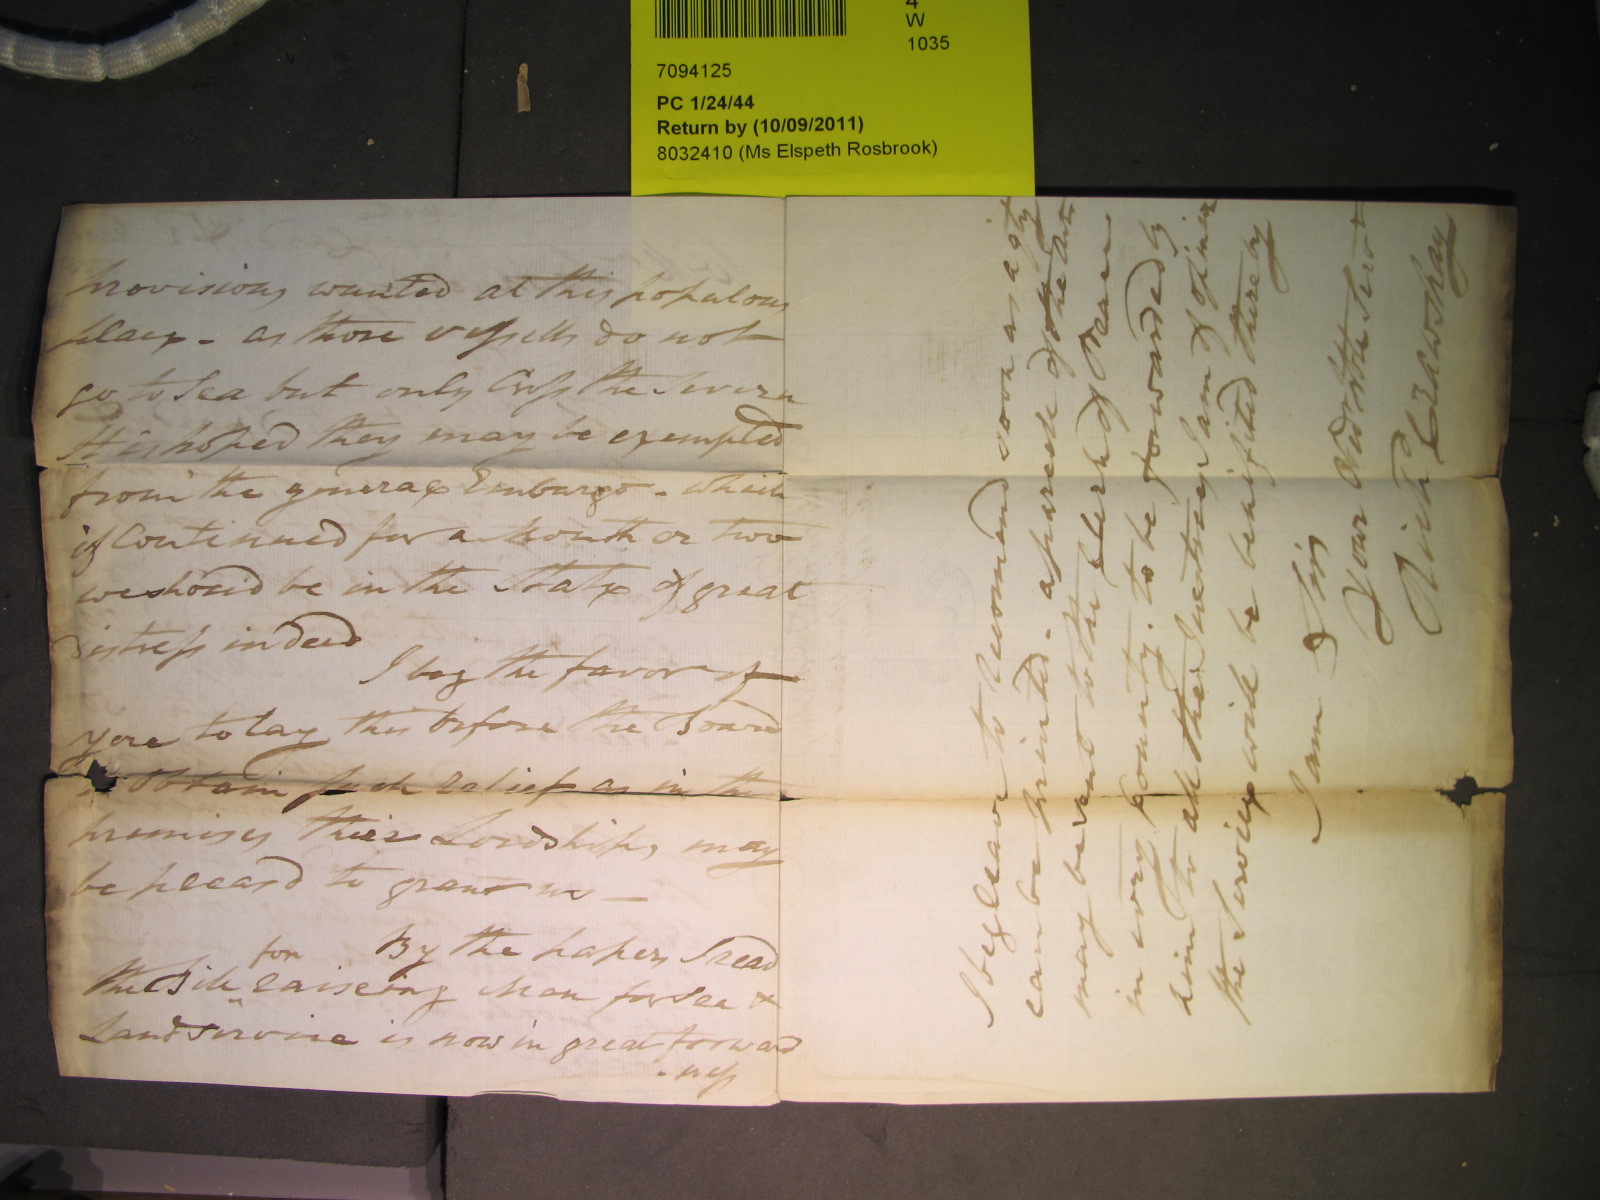 4
W
1035
7094125
PC 1/24/44
Return by (10/09/2011)
8032410 (Ms Elspeth Rosbrook)
provisions wanted at this populous
place - as those vessells do not
go to Sea but only Cross the Severn
It is hoped they may be exempted
from the general Embargo - which
if Continued for a Month or two
we should be in the State of great
distress indeed
I beg the favor of
you to lay this before the Board
& Obtain such relief as in the
premises their Lordships may
be pleasd to grant us —
By the papers I read
the Bill for raiseing Men for Sea &
Land Service is now in great forward
-ness
I beg leave to recomend soon as a qty
can be printed - a parcel of the acts
may be sent to the Clerk of Peace
in every County - to be forwarded by
him to all the Justices, I am of opinion
the Service will be benefited thereby
I am Sir
Your Obedt Hble Servt
Richd Crawshay